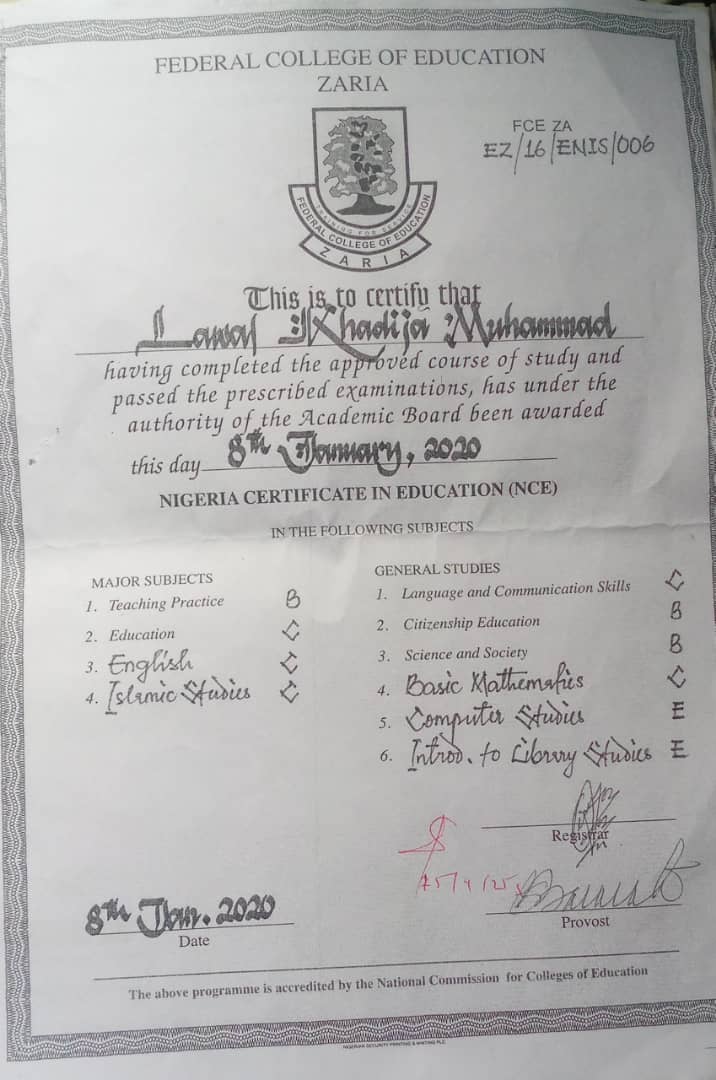 FEDERAL COLLEGE OF EDUCATION
ZARIA
FCE ZA
EZ/16/ENIS/006
TRAINING FOR SERVICE
FEDERAL COLLEGE OF EDUCATION
ZARIA
This is to certify that
Lawal Khadija Muhammad
having completed the approved course of study and
passed the prescribed examinations, has under the
authority of the Academic Board been awarded
this day 8th January, 2020
NIGERIA CERTIFICATE IN EDUCATION (NCE)
IN THE FOLLOWING SUBJECTS
MAJOR SUBJECTS
1. Teaching Practice B
2. Education C
3. English C
4. Islamic Studies C
GENERAL STUDIES
1. Language and Communication Skills C
2. Citizenship Education B
3. Science and Society B
4. Basic Mathematics C
5. Computer Studies E
6. Introd. to Library Studies E
Registrar
Provost
8th Jan. 2020
Date
The above programme is accredited by the National Commission for Colleges of Education
NIGERIAN SECURITY PRINTING & MINTING PLC